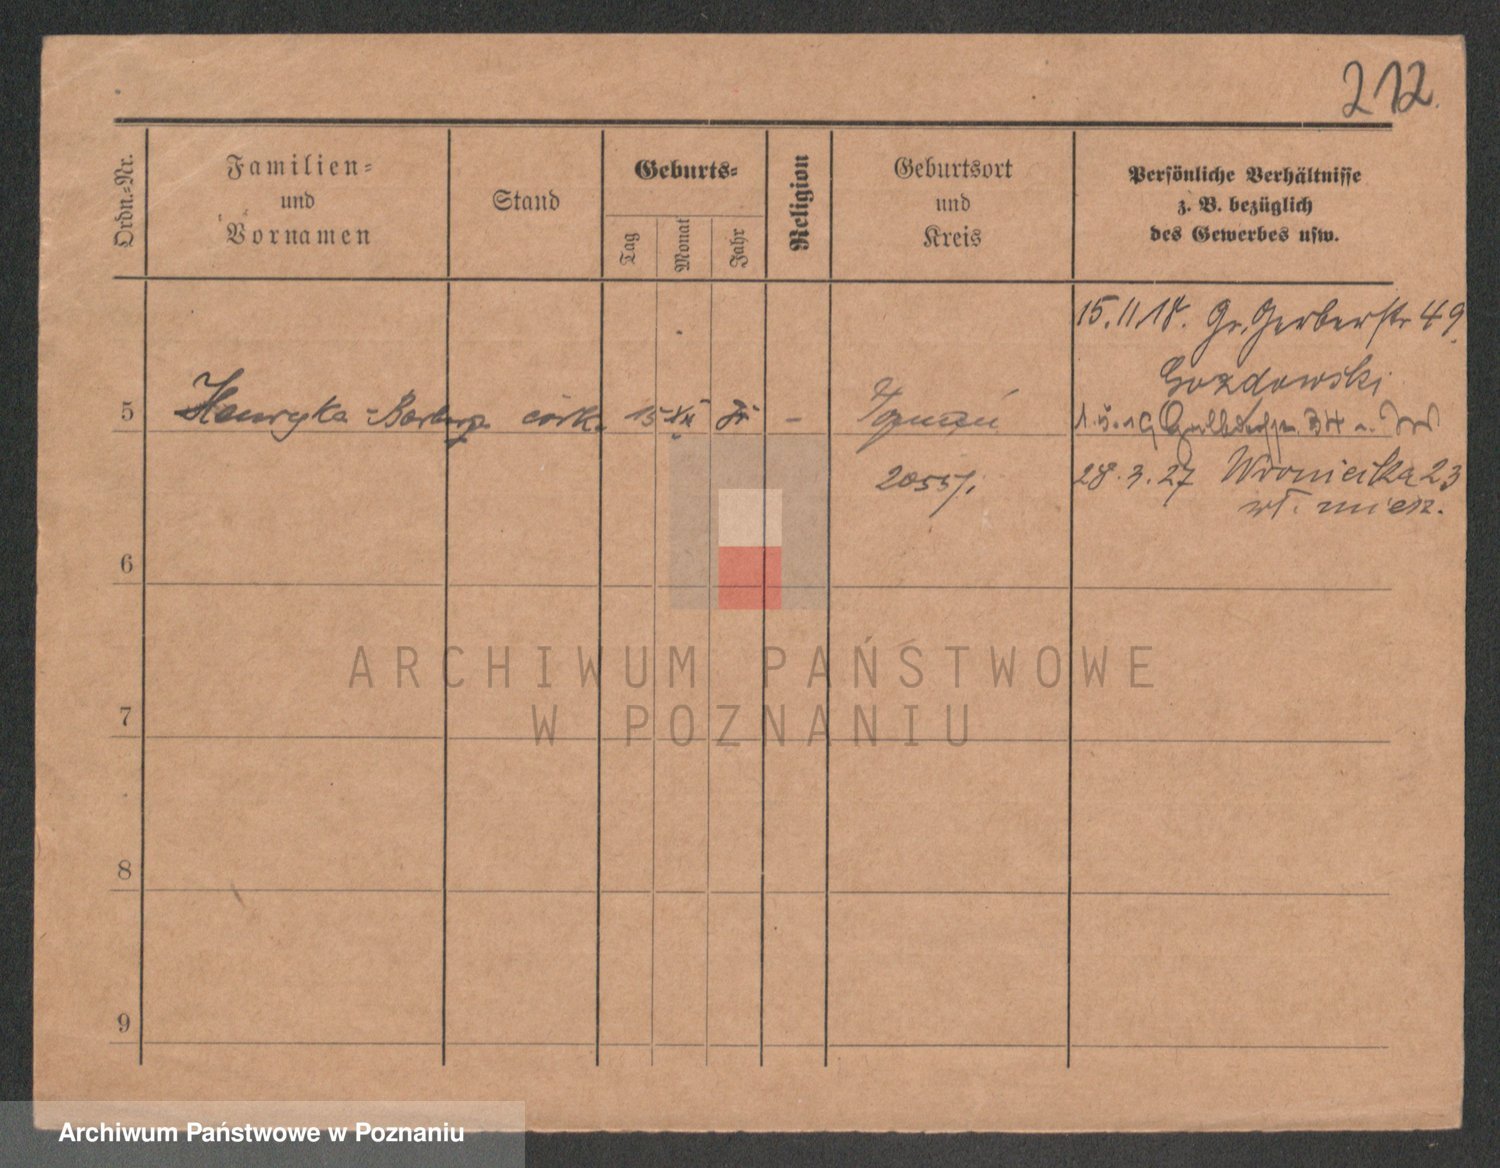 212.
Ordn.=Nr.
Familien=
und
Vornamen
Stand
Geburts=
Tag
Monat
Jahr
Religion
Geburtsort
und
Kreis
Persönliche Verhältnisse
z. B. bezüglich
des Gewerbes usw.
15.11.18. Gr. Gerberstr 49
Gozdowski
5 Henryka - Barbara córk. 15 XII - Poznań
1.5.19
28.3.27 Wroniecka 23
wł. miesz.
2055/
6
7
8
9
ARCHIWUM PAŃSTWOWE
W POZNANIU
Archiwum Państwowe w Poznaniu